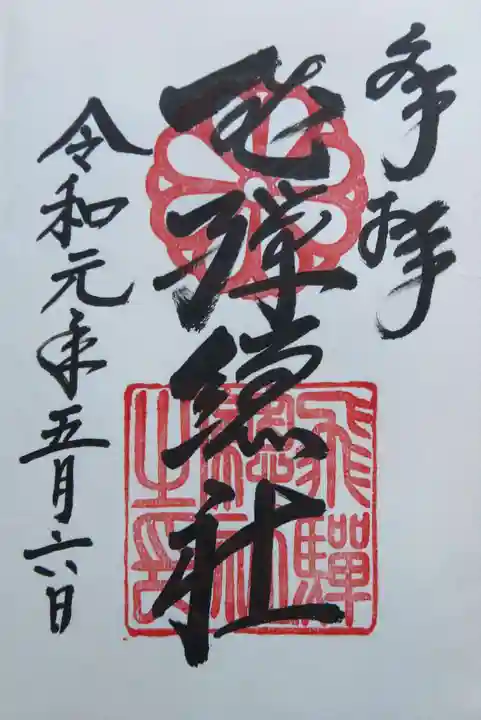 奉拝
飛驒総社
令和元年五月六日
飛驒
総社
之印